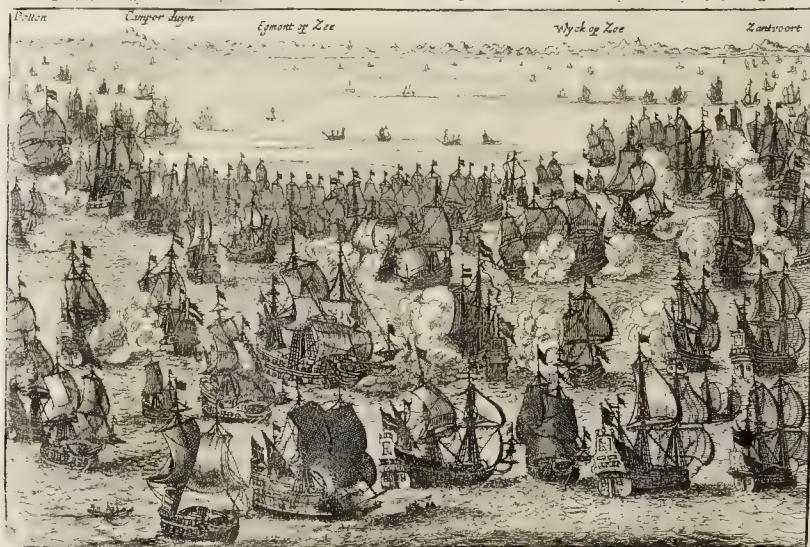 Petten Camper duyn Egmont op Zee Wyck op Zee Zantvoort